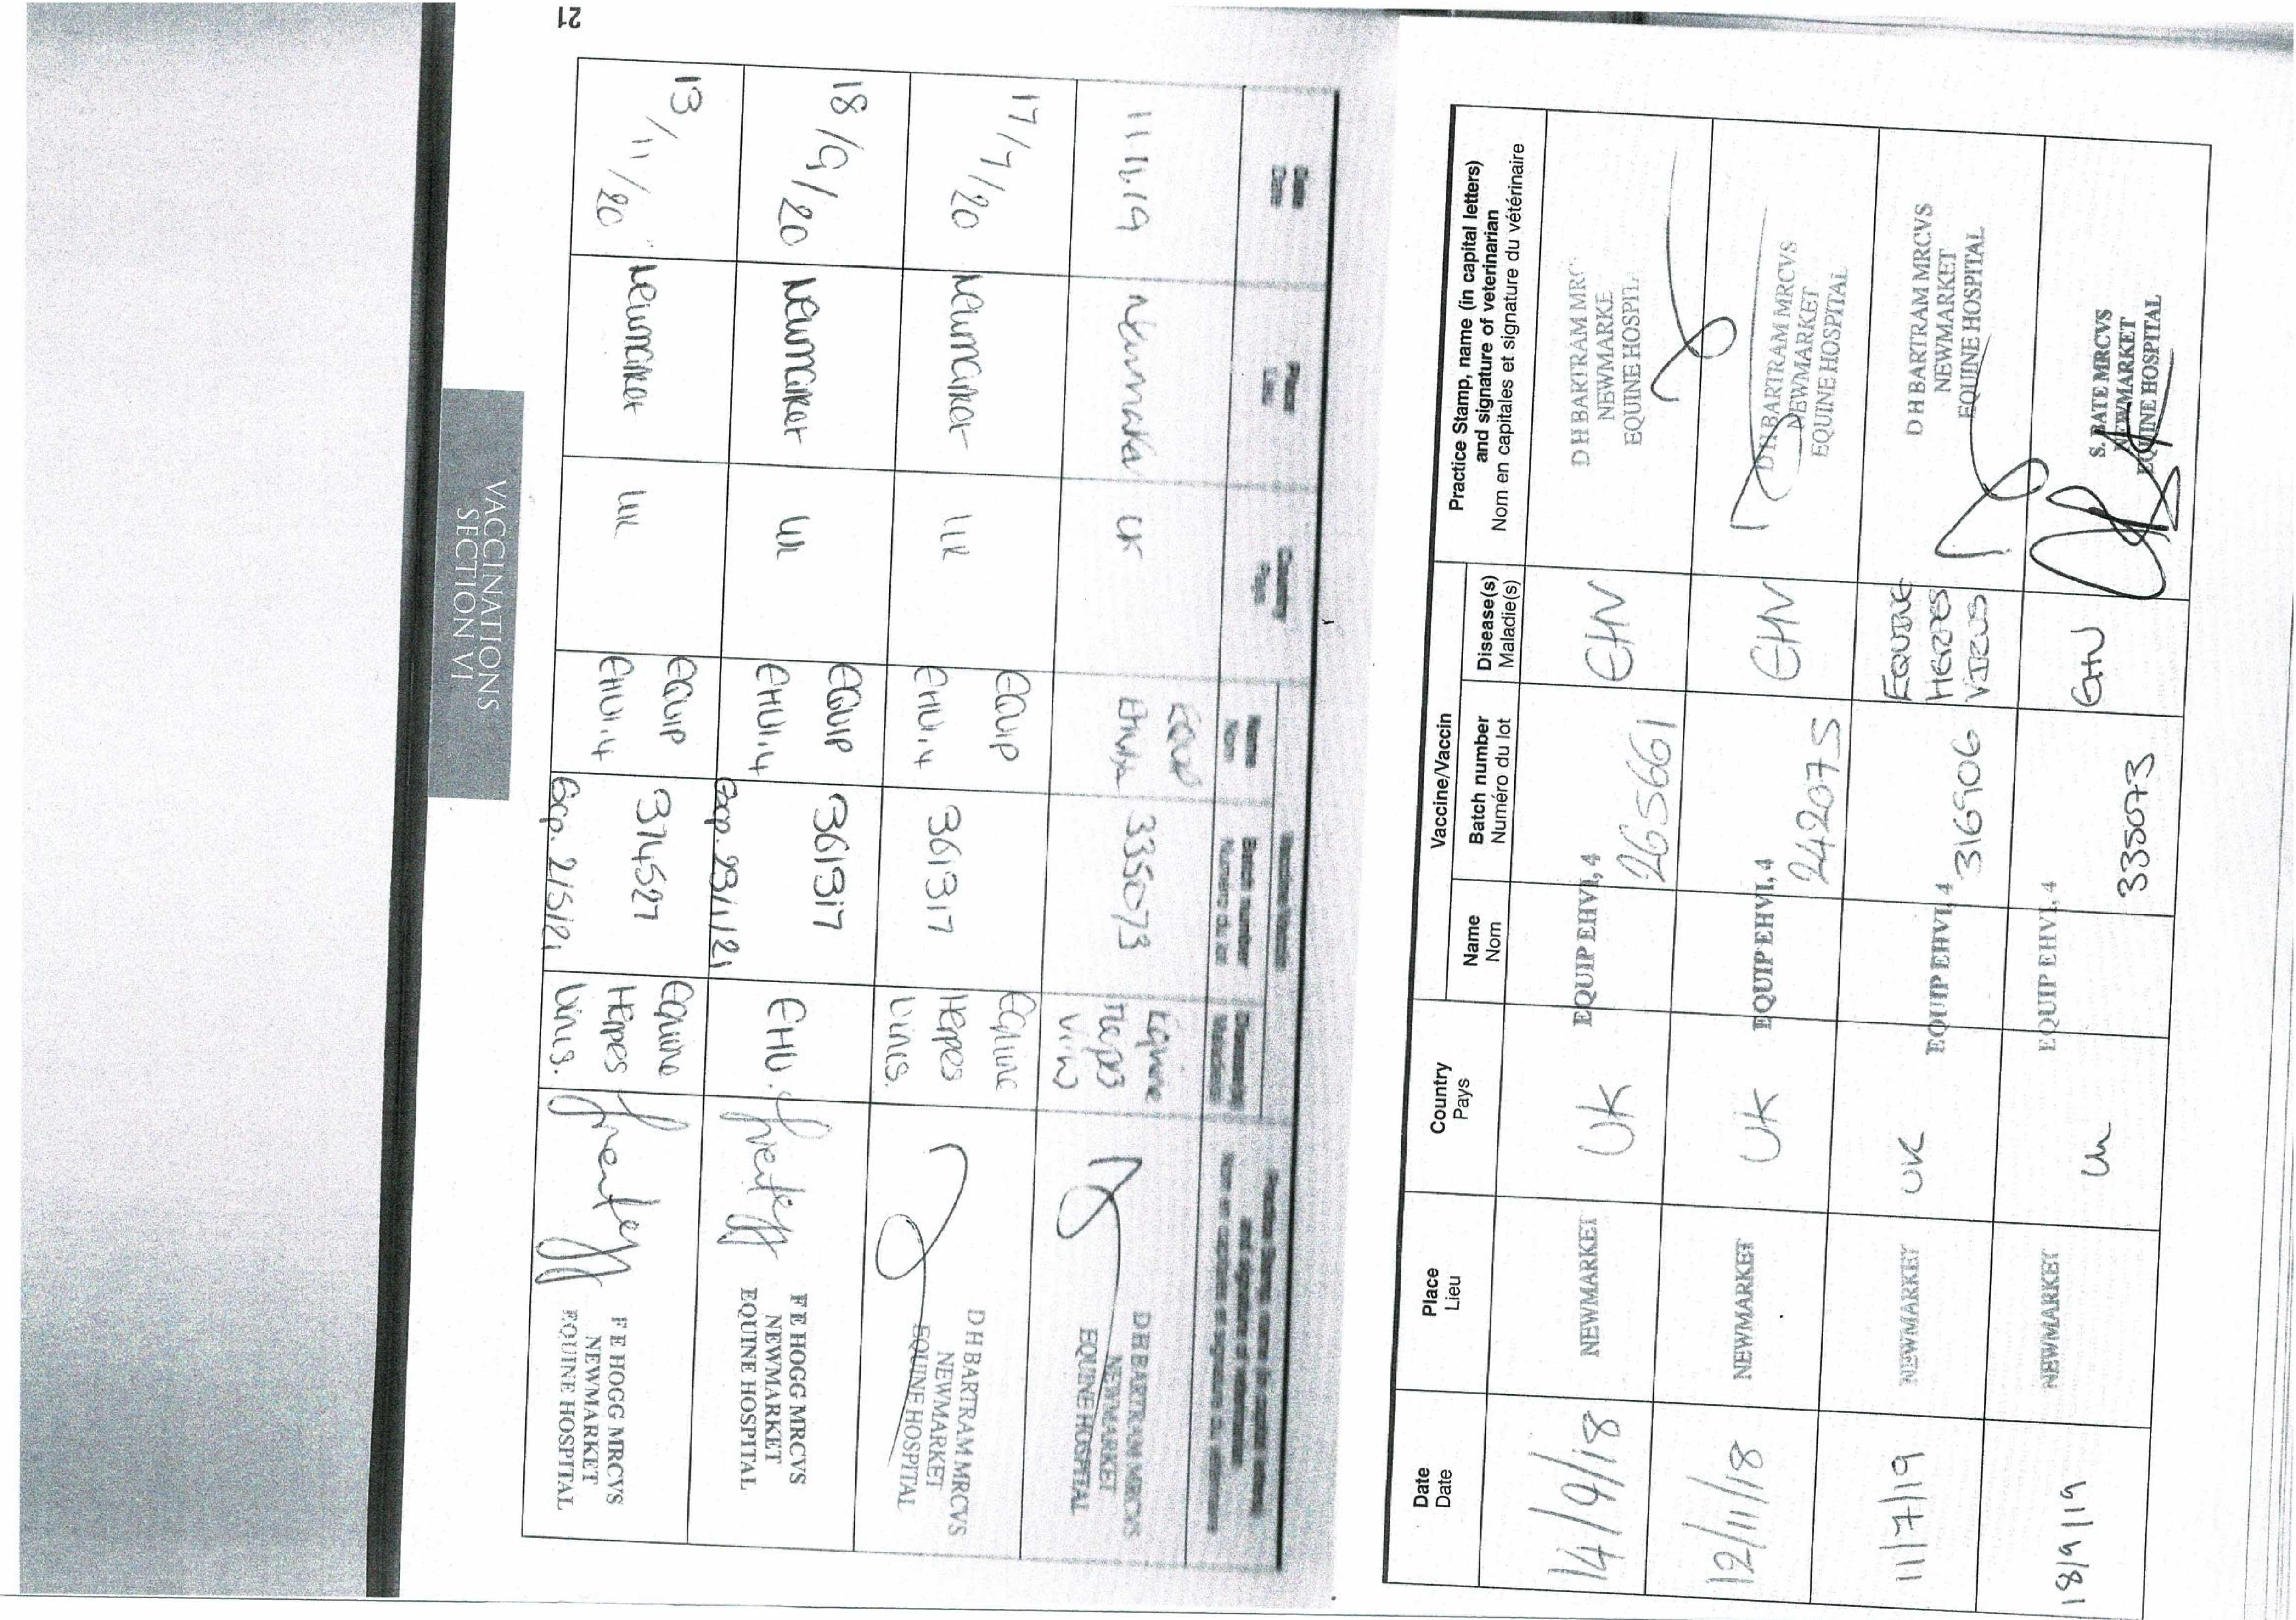 Date
Date
Place
Lieu
Country
Pays
Vaccine/Vaccin
Name
Nom
Batch number
Numéro du lot
Disease(s)
Maladie(s)
Practice Stamp, name (in capital letters)
and signature of veterinarian
Nom en capitales et signature du vétérinaire
14/9/18
NEWMARKET
UK
EQUIP EHV1,4
265661
EHV
D H BARTRAM MRC
NEWMARKE
EQUINE HOSPIT
12/11/18
NEWMARKET
UK
EQUIP EHV1,4
242075
EHV
D H BARTRAM MRCVS
NEWMARKET
EQUINE HOSPITAL
11/7/19
NEWMARKET
UK
EQUIP EHV1,4
316906
EQUINE
HERPES
VIRUS
D H BARTRAM MRCVS
NEWMARKET
EQUINE HOSPITAL
18/9/19
NEWMARKET
UK
EQUIP EHV1,4
335073
EHV
S. BATE MRCVS
NEWMARKET
EQUINE HOSPITAL
Date
Date
Place
Lieu
Country
Pays
Name
Nom
Batch number
Numéro du lot
11.11.19
Newmarket
UK
Equip
335073
Equine
Herpes
D H BARTRAM MRCVS
NEWMARKET
EQUINE HOSPITAL
17/7/20
Newmarket
UK
EQUIP
EHV1,4
361317
Equine
Herpes
Virus.
D H BARTRAM MRCVS
NEWMARKET
EQUINE HOSPITAL
18/9/20
Newmarket
UK
EQUIP
EHV1,4
361317
Exp. 23/1/21
EHV.
F E HOGG MRCVS
NEWMARKET
EQUINE HOSPITAL
13/11/20
Newmarket
UK
EQUIP
EHV1,4
374527
Exp. 2/5/21
Equine
Herpes
Virus.
F E HOGG MRCVS
NEWMARKET
EQUINE HOSPITAL
21
VACCINATIONS
SECTION VI